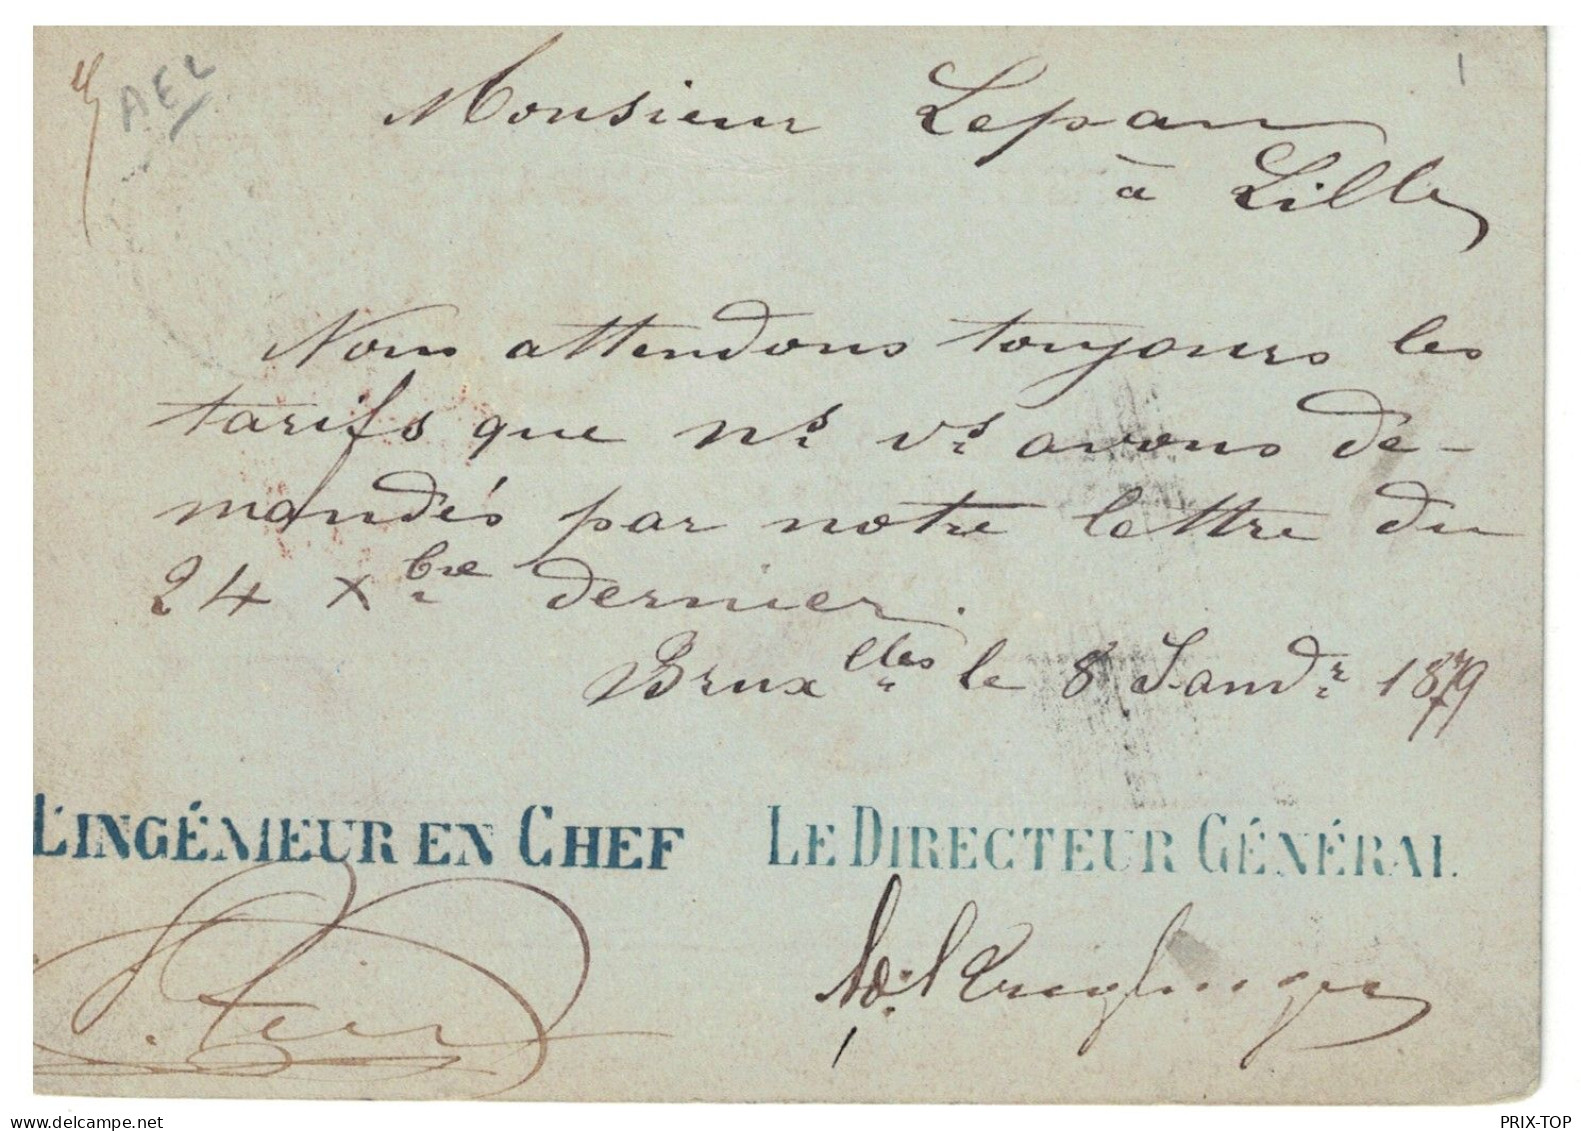 AEL
Monsieur Lepan
à Lille
Nous attendons toujours les
tarifs que ns. vs. avons de-
mandés par notre lettre du
24 Xbre dernier.
Bruxelles le 8 Jandr. 1879
L'INGÉNIEUR EN CHEF LE DIRECTEUR GÉNÉRAL
delcampe.net
PRIX-TOP